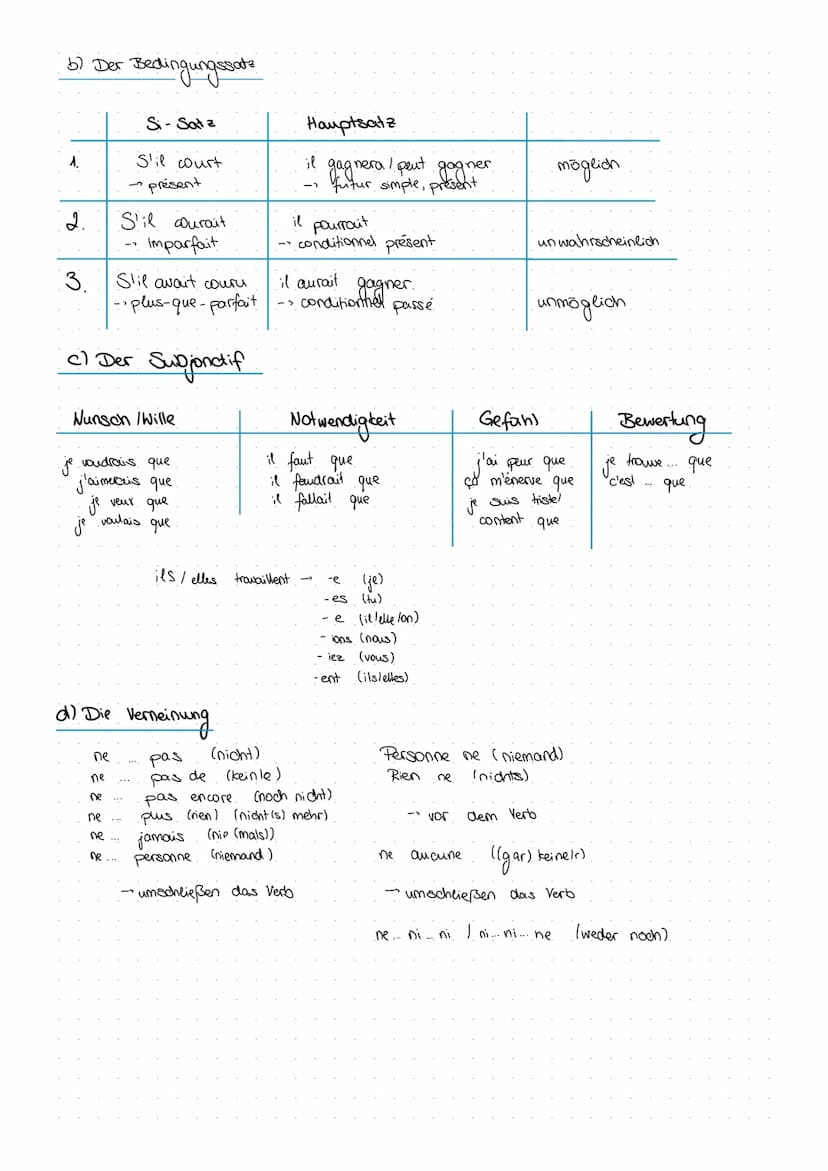 b) Der Bedingungssatz
Si-Satz Hauptsatz
1. S'il court il gagnera / peut gagner möglich
→ présent → futur simple, présent
2. S'il courait il pourrait
→ Imparfait → conditionnel présent unwahrscheinlich
3. S'il avait couru il aurait gagner.
→ plus-que-parfait → conditionnel passé unmöglich
c) Der Subjonctif
Wunsch / Wille Notwendigkeit Gefühl Bewertung
je voudrais que il faut que j'ai peur que je trouve ... que
j'aimerais que il faudrait que ça m'énerve que c'est ... que
je veux que il fallait que je suis triste/
je voulais que content que
ils / elles travaillent → -e (je)
-es (tu)
-e (il/elle/on)
-ions (nous)
-iez (vous)
-ent (ils/elles)
d) Die Verneinung
ne ... pas (nicht) Personne ne (niemand)
ne ... pas de (kein/e) Rien ne (nichts)
ne ... pas encore (noch nicht)
ne ... plus (rien) (nicht(s) mehr) → vor dem Verb
ne ... jamais (nie (mals))
ne ... personne (niemand) ne aucune ((gar) keine/r)
→ umschließen das Verb → umschließen das Verb
ne ... ni ... ni / ni ... ni ... ne (weder noch)